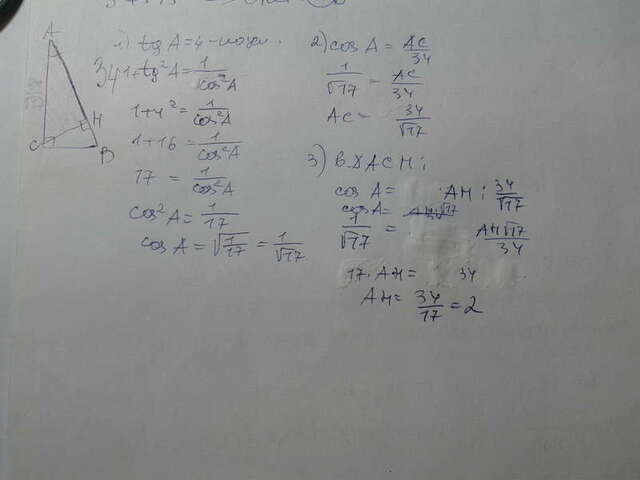 A
34
C
H
B
1) tg A = 4 - по усл.
1+tg²A = 1/cos²A
1+4² = 1/cos²A
1+16 = 1/cos²A
17 = 1/cos²A
cos²A = 1/17
cos A = √(1/17) = 1/√17
2) cos A = AC/34
1/√17 = AC/34
AC = 34/√17
3) В ΔACH:
cos A = AH : 34/√17
cos A =
1/√17 = AH√17/34
17·AH = 34
AH = 34/17 = 2